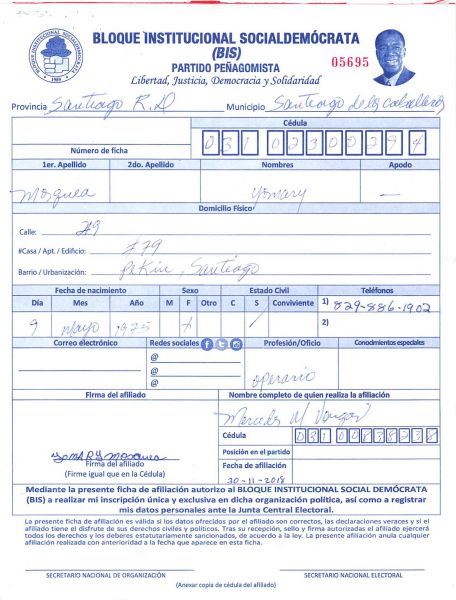 BLOQUE INSTITUCIONAL SOCIALDEMÓCRATA
(BIS)
PARTIDO PEÑAGOMISTA
05695
Libertad, Justicia, Democracia y Solidaridad
Provincia Santiago R.D Municipio Santiago de los Caballeros
Cédula
Número de ficha
1er. Apellido 2do. Apellido Nombres Apodo
Mosquea Yomary —
Domicilio Físico
Calle: #9
#Casa / Apt. / Edificio: #79
Barrio / Urbanización: Pekin, Santiago
Fecha de nacimiento Sexo Estado Civil Teléfonos
Día Mes Año M F Otro C S Conviviente 1) 829-886-1902
9 Mayo 1975 2)
Correo electrónico Redes sociales Profesión/Oficio Conocimientos especiales
@
@
@
operario
Firma del afiliado Nombre completo de quien realiza la afiliación
Mercedes M
Cédula
Yomary Mosquea
Firma del afiliado
(Firme igual que en la Cédula)
Posición en el partido
Fecha de afiliación
30-11-2018
Mediante la presente ficha de afiliación autorizo al BLOQUE INSTITUCIONAL SOCIAL DEMÓCRATA
(BIS) a realizar mi inscripción única y exclusiva en dicha organización política, así como a registrar
mis datos personales ante la Junta Central Electoral.
La presente ficha de afiliación es válida si los datos ofrecidos por el afiliado son correctos, las declaraciones veraces y si el
afiliado tiene el disfrute de sus derechos civiles y políticos. Tras su recepción, sello y firma autorizadas el afiliado ejercerá
todos los derechos y los deberes estatutariamente sancionados, de acuerdo a la ley. La presente afiliación anula cualquier
afiliación realizada con anterioridad a la fecha que aparece en esta ficha.
SECRETARIO NACIONAL DE ORGANIZACIÓN SECRETARIO NACIONAL ELECTORAL
(Anexar copia de cédula del afiliado)